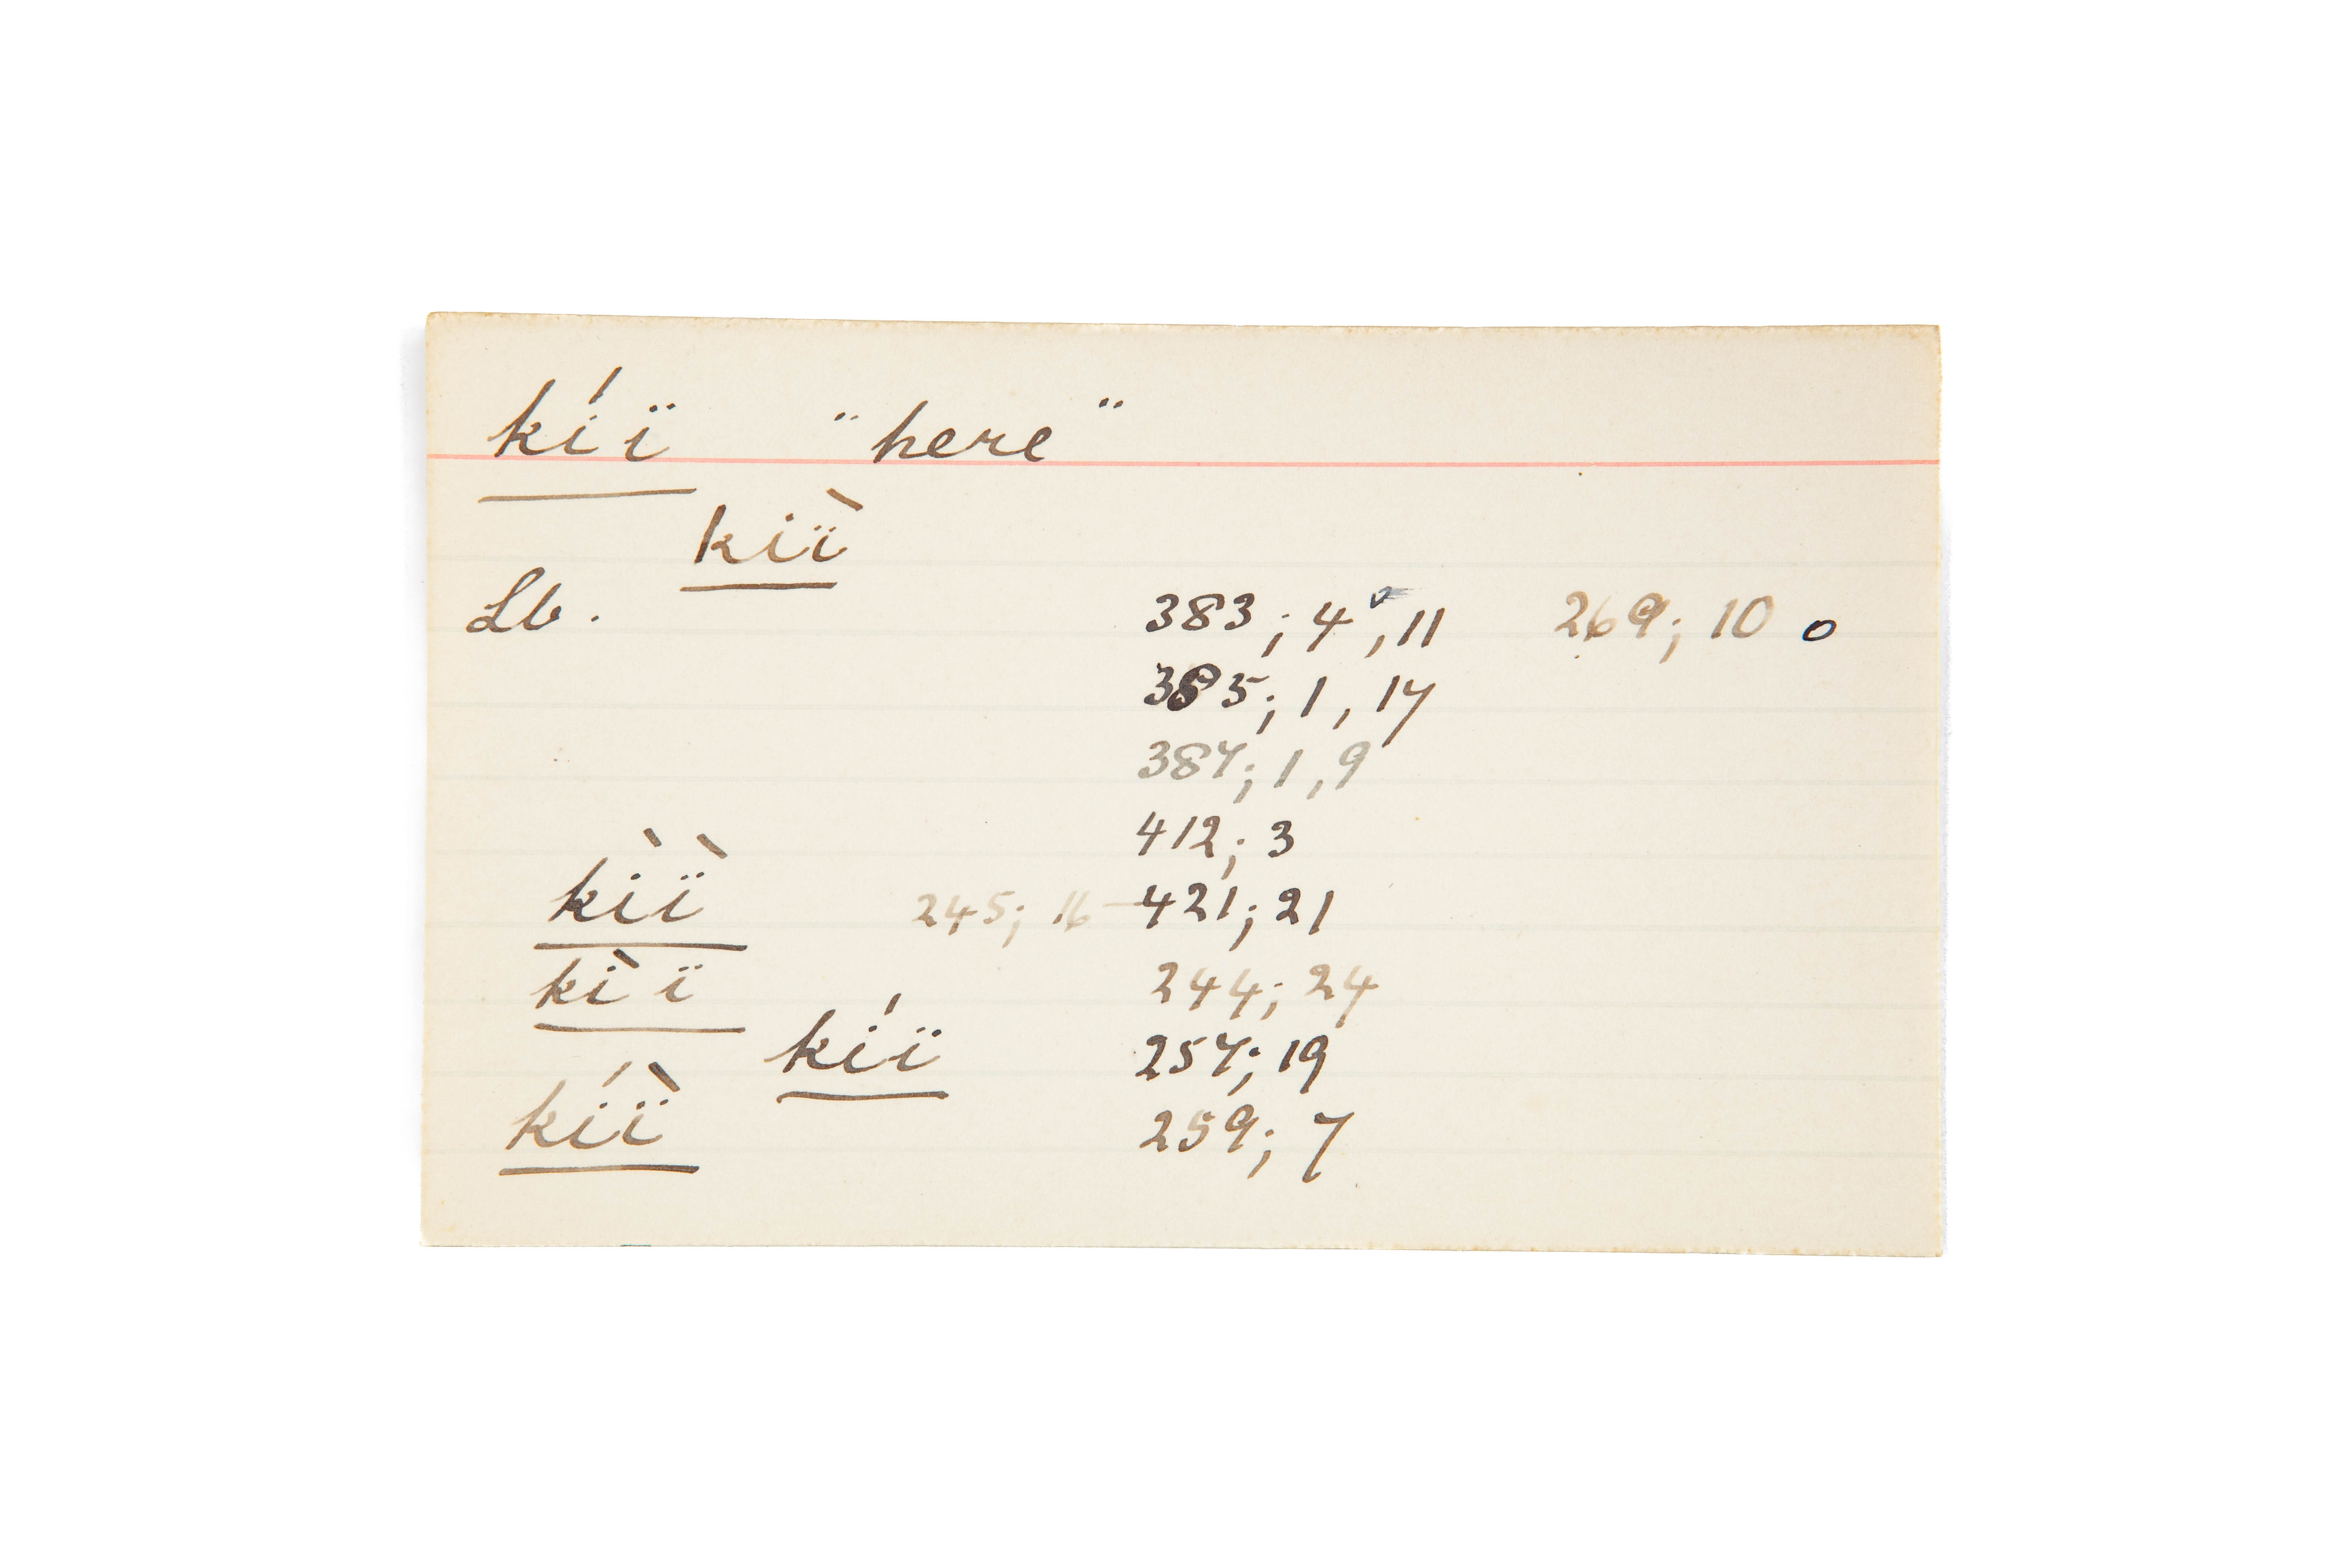 kíï "here"
kiï̀
Lb. 383; 4ᵛ, 11 269; 10 o
385; 1, 17
387; 1, 9
412; 3
kìï̀ 245; 16 — 421; 21
kìï 244; 24
kíï 257; 19
kíï̀ 259; 7